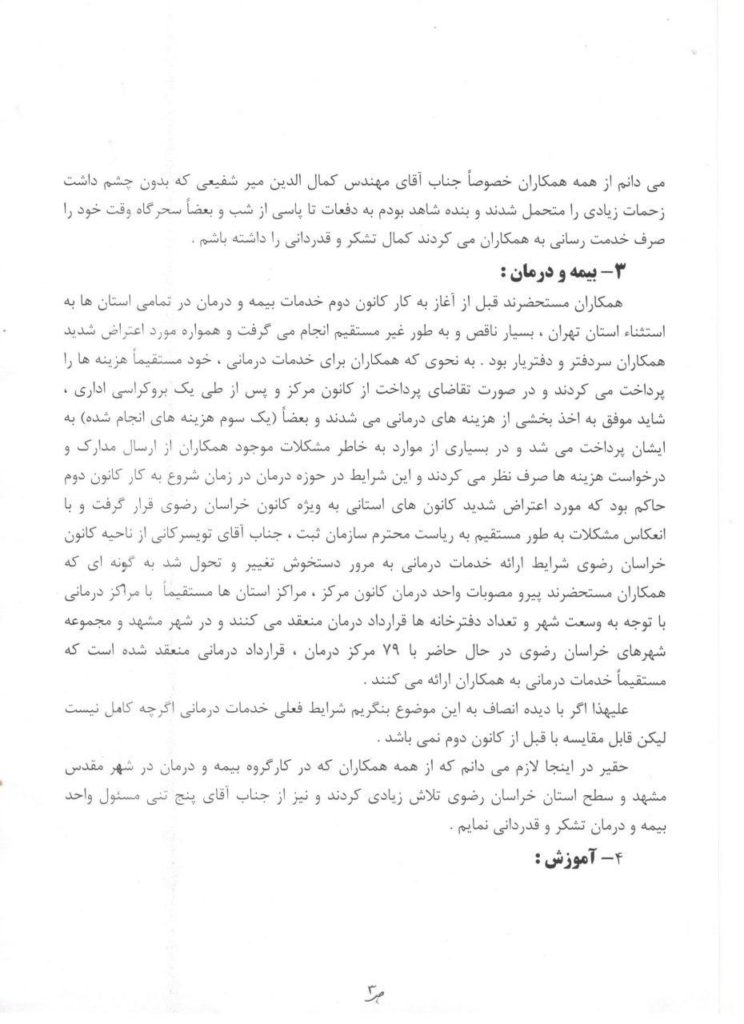 می دانم از همه همکاران خصوصاً جناب آقای مهندس کمال الدین میر شفیعی که بدون چشم داشت
زحمات زیادی را متحمل شدند و بنده شاهد بودم به دفعات تا پاسی از شب و بعضاً سحرگاه وقت خود را
صرف خدمت رسانی به همکاران می کردند کمال تشکر و قدردانی را داشته باشم .
۳- بیمه و درمان :
همکاران مستحضرند قبل از آغاز به کار کانون دوم خدمات بیمه و درمان در تمامی استان ها به
استثناء استان تهران ، بسیار ناقص و به طور غیر مستقیم انجام می گرفت و همواره مورد اعتراض شدید
همکاران سردفتر و دفتریار بود . به نحوی که همکاران برای خدمات درمانی ، خود مستقیماً هزینه ها را
پرداخت می کردند و در صورت تقاضای پرداخت از کانون مرکز و پس از طی یک بروکراسی اداری ،
شاید موفق به اخذ بخشی از هزینه های درمانی می شدند و بعضاً (یک سوم هزینه های انجام شده) به
ایشان پرداخت می شد و در بسیاری از موارد به خاطر مشکلات موجود همکاران از ارسال مدارک و
درخواست هزینه ها صرف نظر می کردند و این شرایط در حوزه درمان در زمان شروع به کار کانون دوم
حاکم بود که مورد اعتراض شدید کانون های استانی به ویژه کانون خراسان رضوی قرار گرفت و با
انعکاس مشکلات به طور مستقیم به ریاست محترم سازمان ثبت ، جناب آقای تویسرکانی از ناحیه کانون
خراسان رضوی شرایط ارائه خدمات درمانی به مرور دستخوش تغییر و تحول شد به گونه ای که
همکاران مستحضرند پیرو مصوبات واحد درمان کانون مرکز ، مراکز استان ها مستقیماً با مراکز درمانی
با توجه به وسعت شهر و تعداد دفترخانه ها قرارداد درمان منعقد می کنند و در شهر مشهد و مجموعه
شهرهای خراسان رضوی در حال حاضر با ۷۹ مرکز درمان ، قرارداد درمانی منعقد شده است که
مستقیماً خدمات درمانی به همکاران ارائه می کنند .
علیهذا اگر با دیده انصاف به این موضوع بنگریم شرایط فعلی خدمات درمانی اگرچه کامل نیست
لیکن قابل مقایسه با قبل از کانون دوم نمی باشد .
حقیر در اینجا لازم می دانم که از همه همکاران که در کارگروه بیمه و درمان در شهر مقدس
مشهد و سطح استان خراسان رضوی تلاش زیادی کردند و نیز از جناب آقای پنج تنی مسئول واحد
بیمه و درمان تشکر و قدردانی نمایم .
۴- آموزش :
ص۳